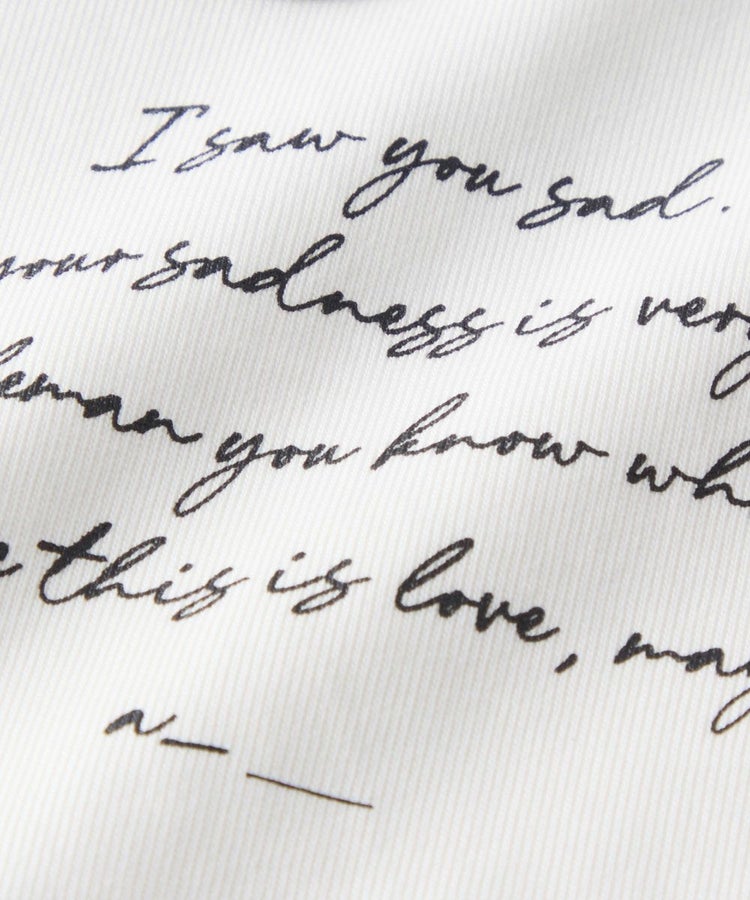 I saw you sad.
your sadness is very
leman you know wh
e this is love, may
a_ __